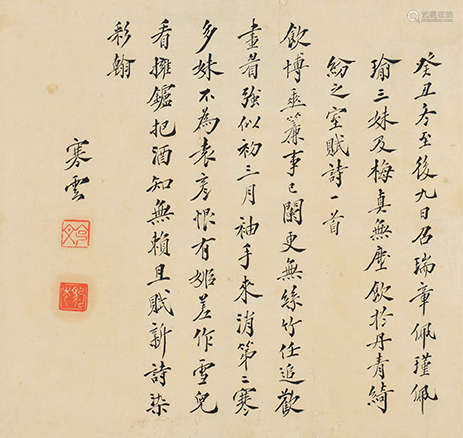 癸丑冬至後九日召瑞章佩瑾佩
瑜三妹及梅真無塵飲於丹青綺
紛之室賦詩一首
飲博垂簾事已闌更無絲竹任追歡
畫眉強似初三月袖手來消第二寒
多妹不為袁彥恨有姬差作雪兒
看擁鑪把酒知無賴且賦新詩染
彩翰
寒雲